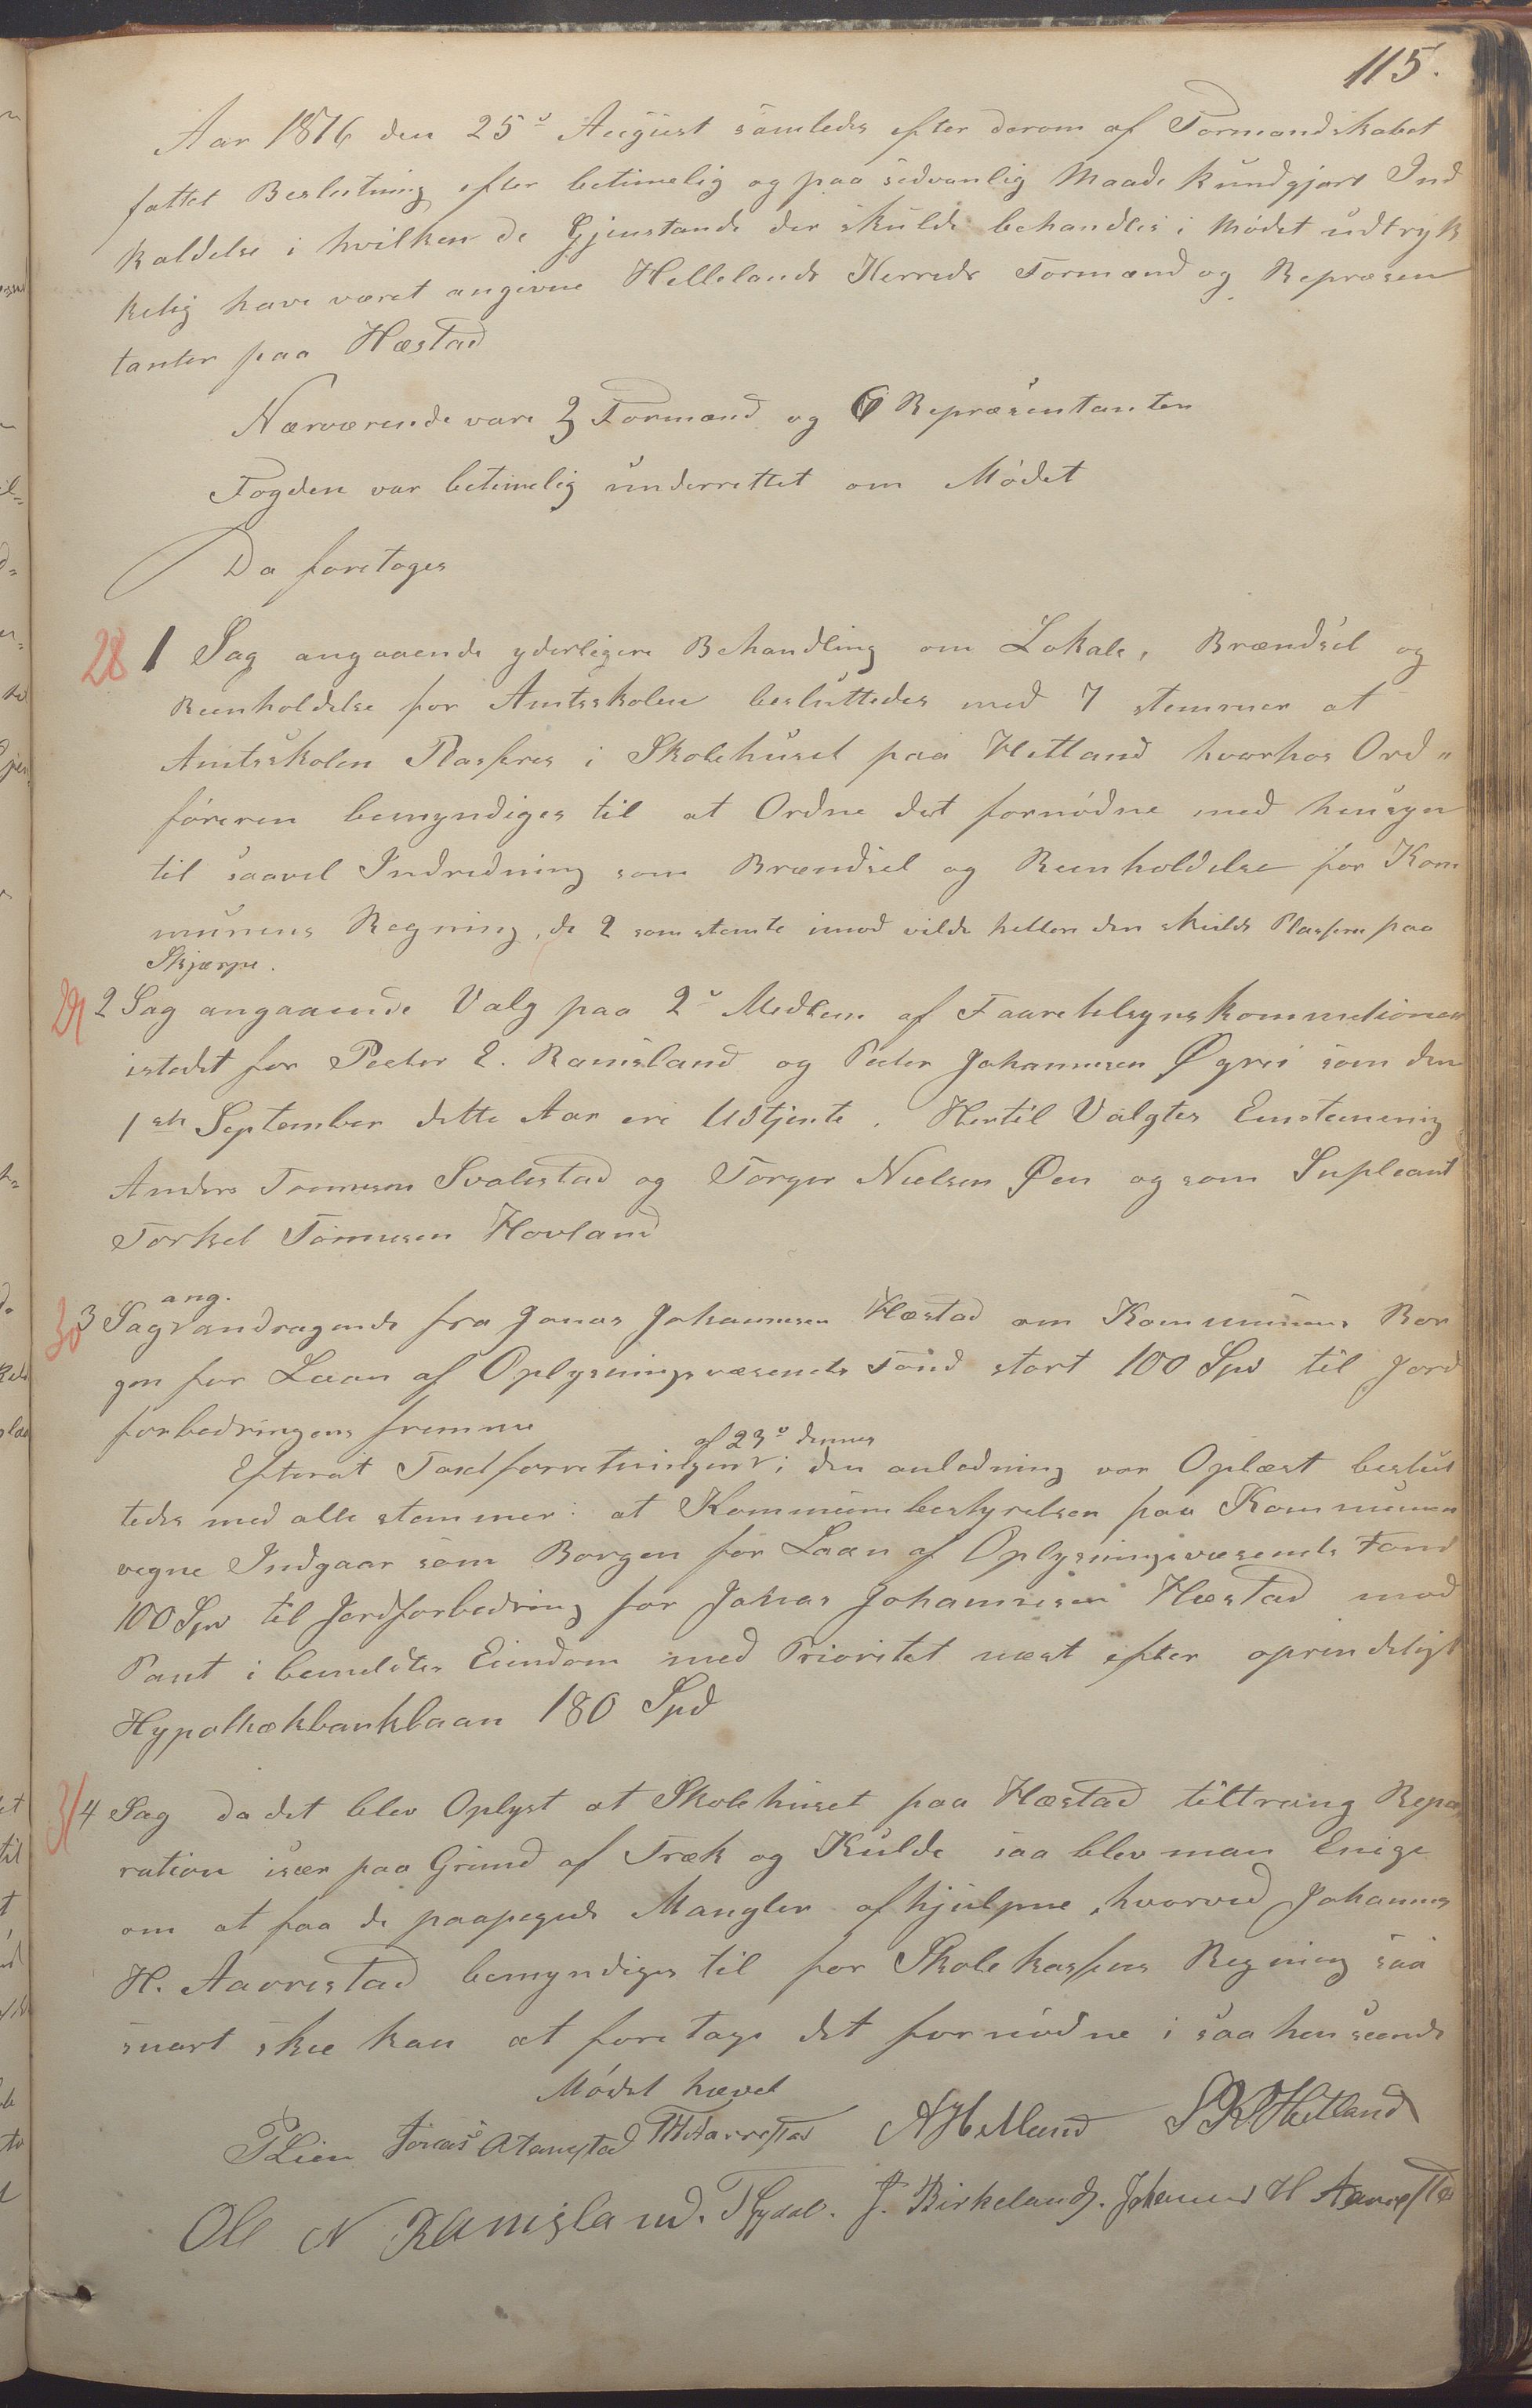 115.
Aar 1876 den 25d August samledes efter derom af Formandskabet
fattet Beslutning efter betimelig og paa sedvanlig Maade kundgjort Ind
kaldelse i hvilken de Gjenstande der skulde behandles i Mødet udtryk
kelig have været angivne Hellelands Herreds Formænd og Repræsen
tanter paa Hæstad
Nærværende vare 3 Formænd og 6 Repræsentanter
Fogden var betimelig underrettet om Mødet
Da foretoges
28 1 Sag angaaende yderligere Behandling om Lokale, Brændsel og
Reenholdelse for Amtsskolen besluttedes med 7 stemmer at
Amtsskolen Plasseres i Skolehuset paa Hetland hvorhos Ord„
føreren bemyndiges til at Ordne det fornødne med hensyn
til saavel Indredning som Brændsel og Reenholdelse for Kom
munens Regning, de 2 som stemte imod vilde heller den skulde Plasseres paa
Skjærpe.
29 2 Sag angaaende Valg paa 2d Medlem af Faaretilsynskommitionen
istedet for Peder E. Ramsland og Peder Johannesen Øgrei som den
1ste September dette Aar ere Udtjente. Hertil Valgtes Enstemmig
Anders Tønnesen Svalestad og Torger Nielsen Øen og som Supleant
Torkel Tønnesen Hovland
ang.
30 3 Sag andragende fra Jonas Johannesen Hæstad om Kommunens Bor
gen for Laan af Oplysningsvæsenets Fond stort 100 Spd til Jord
forbedringens fremme
af 23d dennes
Efterat Taxtforretningen i den anledning var Oplæst beslut
tedes med alle stemmer: at Kommunebestyrelsen paa Kommunen
vegne Indgaar som Borgen for Laan af Oplysningsvæsenets Fond
100 Spd til Jordforbedring for Jonas Johannesen Hæstad mod
Pant i bemeldtes Eiendom med Prioritet næst efter oprindeligt
Hypothekbanklaan 180 Spd
31 4 Sag da det blev Oplyst at Skolehuset paa Hæstad tiltræng Repa
ration især paa Grund af Træk og Kulde saa blev man Enige
om at faa de paapegede Mangler afhjulpne, hvorved Johannes
H. Aarrestad bemyndiges til for Skolekassens Regning saa
snart skee kan at foretage det fornødne i saa henseende
Mødet hævet
P Lien Jonas A Tangstad TH Aarrestad AHetland S R Hetland
Ole N Ramsland. T Gydal. J. Birkeland. Johannes H Aarrestad